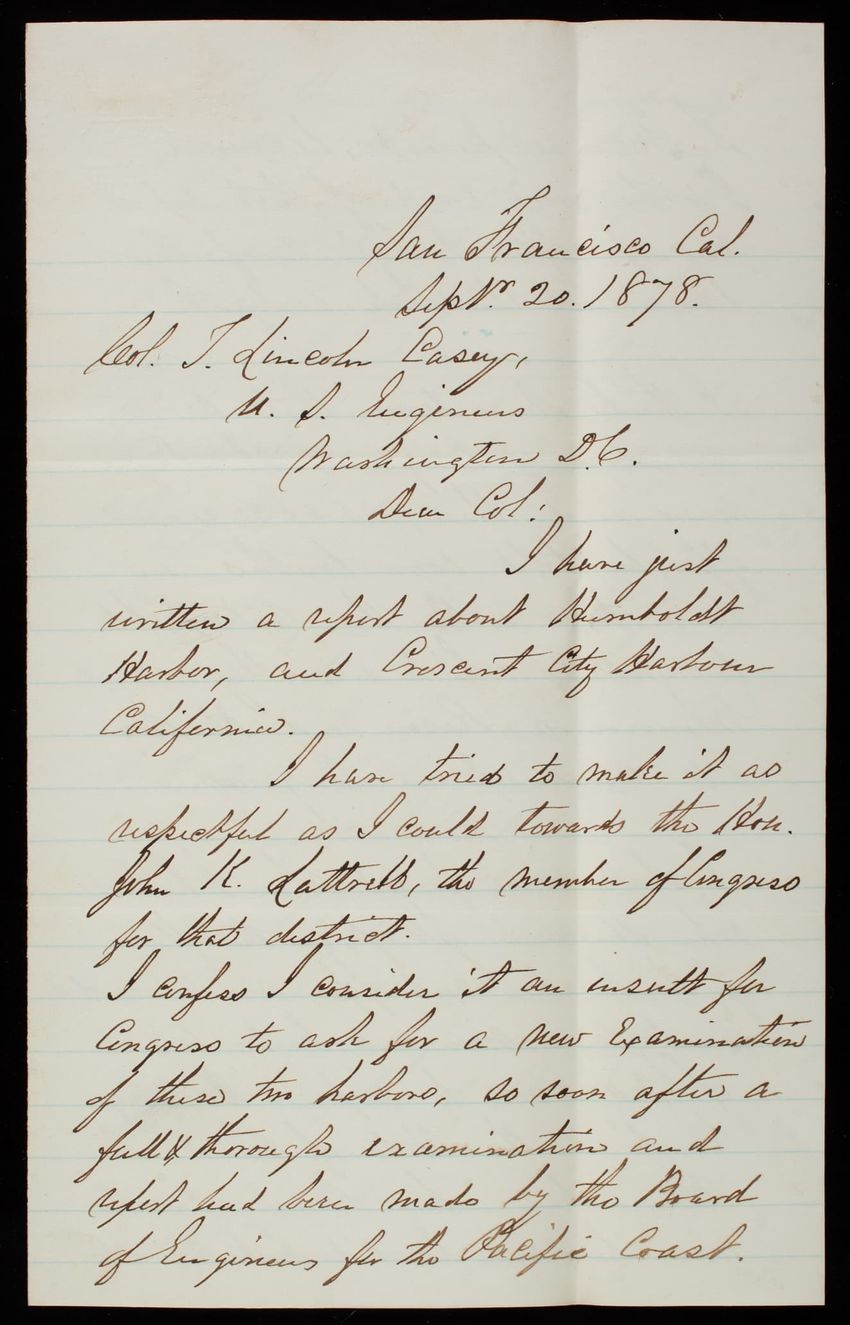 San Francisco Cal.
Septr. 20. 1878.
Col. T. Lincoln Casey,
U. S. Engineers
Washington D.C.
Dear Col:
I have just
written a report about Humboldt
Harbor, and Crescent City Harbour
California.
I have tried to make it as
respectful as I could towards the Hon.
John K. Luttrell, the member of Congress
for that district.
I confess I consider it an insult for
Congress to ask for a new Examination
of these two harbors, so soon after a
full & thorough examination and
report had been made by the Board
of Engineers for the Pacific Coast.